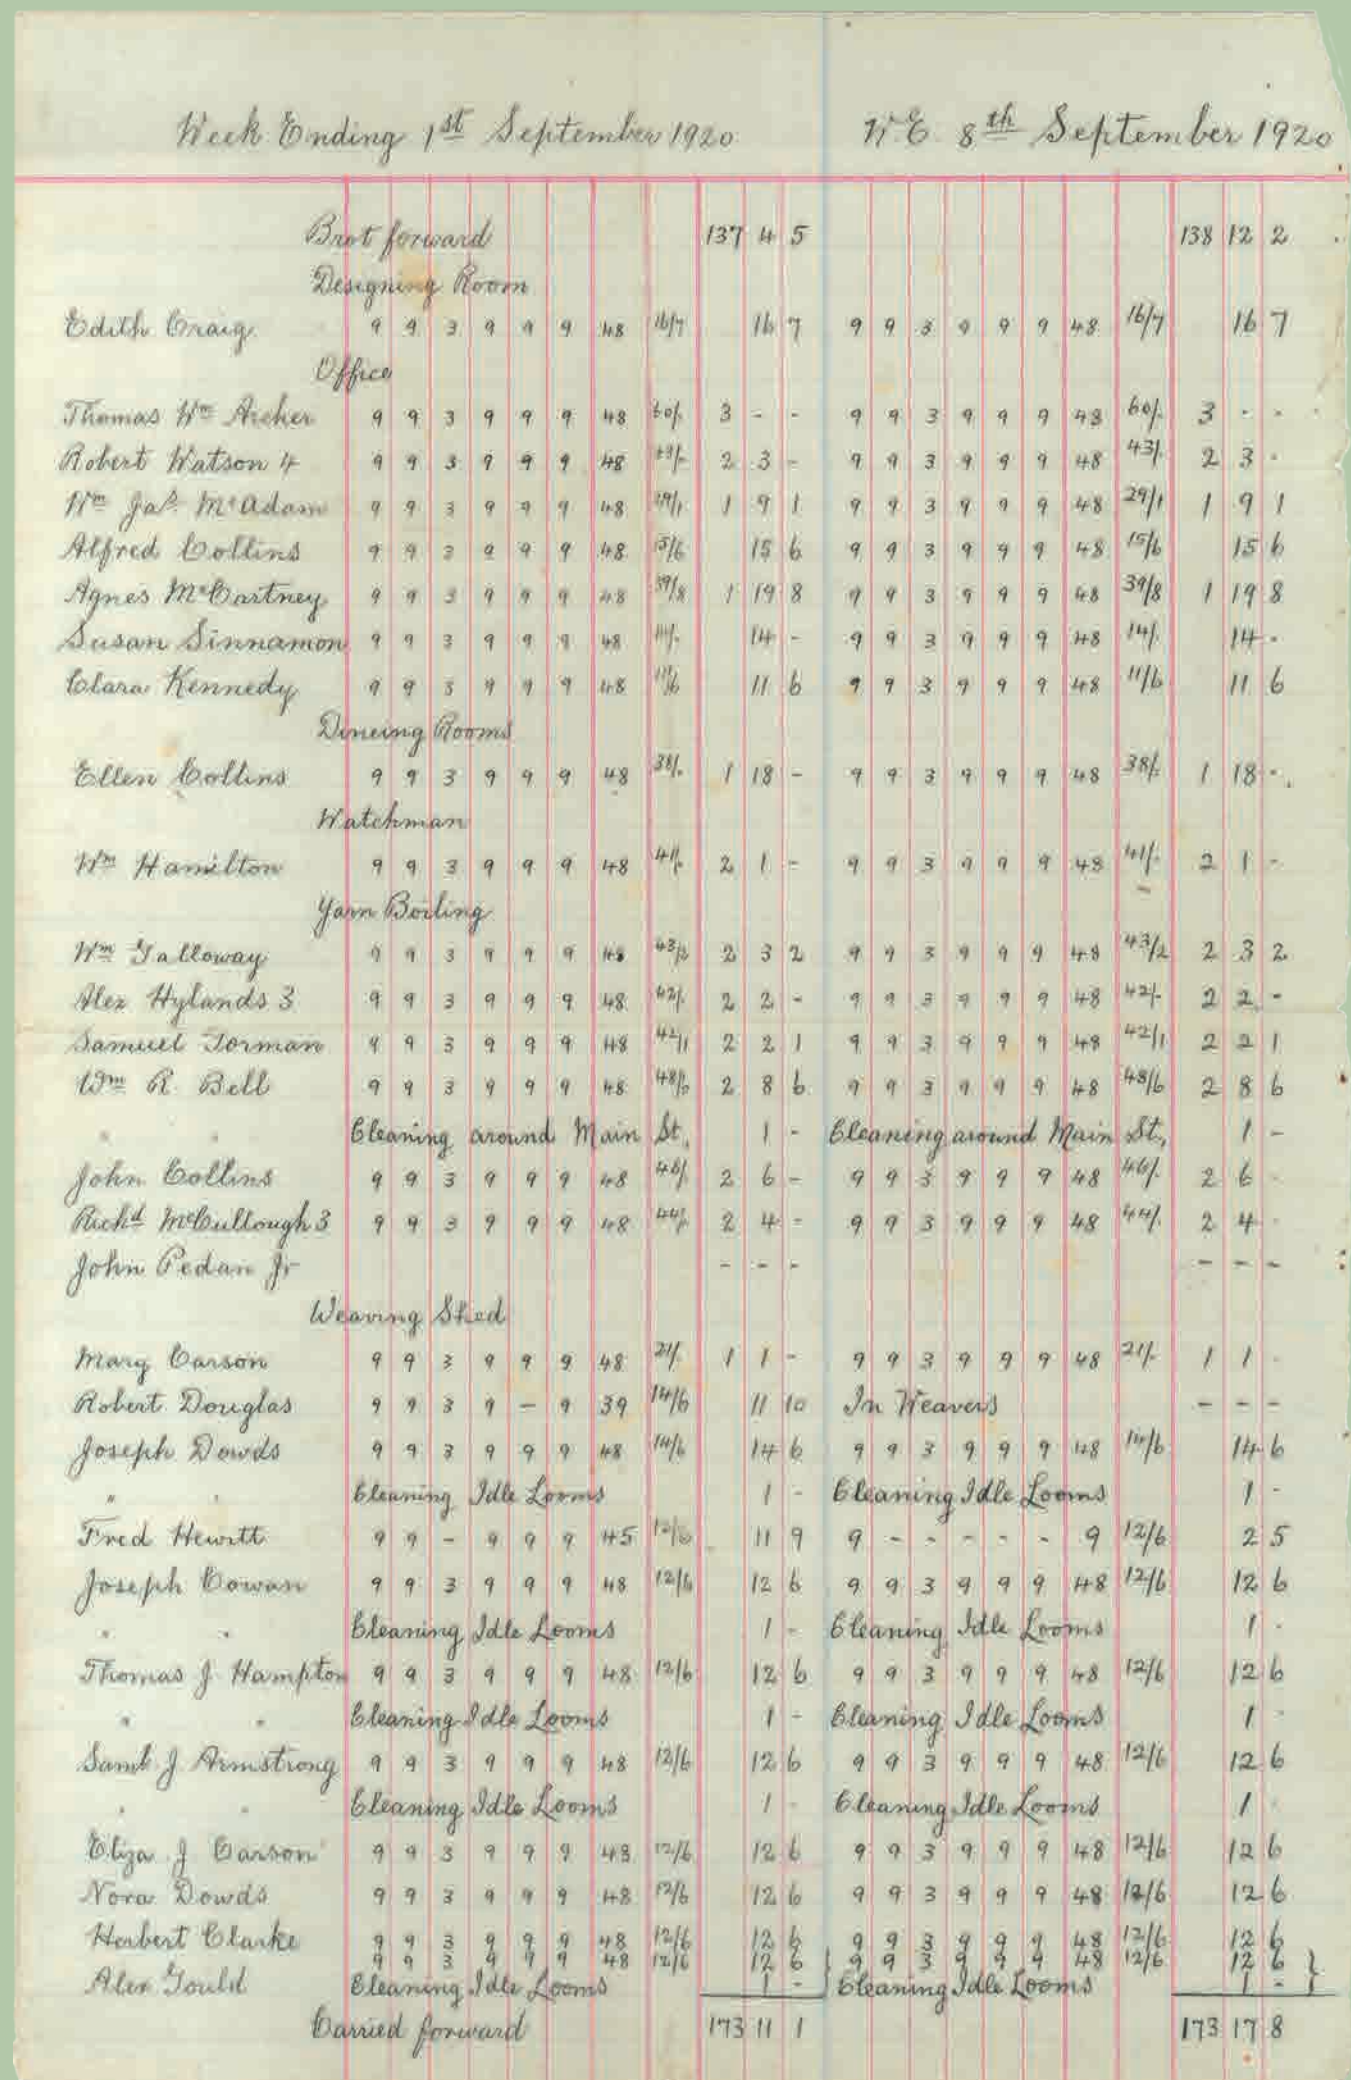 Week Ending 1st September 1920 W.E. 8th September 1920
Brot forward 137 4 5 138 12 2
Designing Room
Edith Craig 9 9 3 9 9 9 48 16/7 16 7 9 9 3 9 9 9 48 16/7 16 7
Office
Thomas Wm Archer 9 9 3 9 9 9 48 60/- 3 - - 9 9 3 9 9 9 48 60/- 3 - -
Robert Watson 4 9 9 3 9 9 9 48 43/- 2 3 - 9 9 3 9 9 9 48 43/- 2 3 -
Wm Jas. McAdam 9 9 3 9 9 9 48 29/1 1 9 1 9 9 3 9 9 9 48 29/1 1 9 1
Alfred Collins 9 9 3 9 9 9 48 15/6 15 6 9 9 3 9 9 9 48 15/6 15 6
Agnes McCartney 9 9 3 9 9 9 48 39/8 1 19 8 9 9 3 9 9 9 48 39/8 1 19 8
Susan Sinnamon 9 9 3 9 9 9 48 14/- 14 - 9 9 3 9 9 9 48 14/- 14 -
Clara Kennedy 9 9 3 9 9 9 48 11/6 11 6 9 9 3 9 9 9 48 11/6 11 6
Dineing Rooms
Ellen Collins 9 9 3 9 9 9 48 38/- 1 18 - 9 9 3 9 9 9 48 38/- 1 18 -
Watchman
Wm Hamilton 9 9 3 9 9 9 48 41/- 2 1 - 9 9 3 9 9 9 48 41/- 2 1 -
Yarn Boiling
Wm Galloway 9 9 3 9 9 9 48 43/2 2 3 2 9 9 3 9 9 9 48 43/2 2 3 2
Alex Hylands 3 9 9 3 9 9 9 48 42/- 2 2 - 9 9 3 9 9 9 48 42/- 2 2 -
Samuel Gorman 9 9 3 9 9 9 48 42/1 2 2 1 9 9 3 9 9 9 48 42/1 2 2 1
Wm R. Bell 9 9 3 9 9 9 48 48/6 2 8 6 9 9 3 9 9 9 48 48/6 2 8 6
" " Cleaning around Main St, 1 - Cleaning around Main St, 1 -
John Collins 9 9 3 9 9 9 48 46/- 2 6 - 9 9 3 9 9 9 48 46/- 2 6 -
Richd McCullough 3 9 9 3 9 9 9 48 44/- 2 4 - 9 9 3 9 9 9 48 44/- 2 4 -
John Pedan Jr - - - - - -
Weaving Shed
Marg Carson 9 9 3 9 9 9 48 21/- 1 1 - 9 9 3 9 9 9 48 21/- 1 1 -
Robert Douglas 9 9 3 9 - 9 39 14/6 11 10 In Weavers - - -
Joseph Dowds 9 9 3 9 9 9 48 14/6 14 6 9 9 3 9 9 9 48 14/6 14 6
" " Cleaning Idle Looms 1 - Cleaning Idle Looms 1 -
Fred Hewitt 9 9 - 9 9 9 45 12/6 11 9 9 - - - - - 9 12/6 2 5
Joseph Cowan 9 9 3 9 9 9 48 12/6 12 6 9 9 3 9 9 9 48 12/6 12 6
" " Cleaning Idle Looms 1 - Cleaning Idle Looms 1 -
Thomas J Hampton 9 9 3 9 9 9 48 12/6 12 6 9 9 3 9 9 9 48 12/6 12 6
" " Cleaning Idle Looms 1 - Cleaning Idle Looms 1 -
Saml J. Armstrong 9 9 3 9 9 9 48 12/6 12 6 9 9 3 9 9 9 48 12/6 12 6
" " Cleaning Idle Looms 1 - Cleaning Idle Looms 1 -
Eliza J Carson 9 9 3 9 9 9 48 12/6 12 6 9 9 3 9 9 9 48 12/6 12 6
Nora Dowds 9 9 3 9 9 9 48 12/6 12 6 9 9 3 9 9 9 48 12/6 12 6
Herbert Clarke 9 9 3 9 9 9 48 12/6 12 6 9 9 3 9 9 9 48 12/6 12 6
9 9 3 9 9 9 48 12/6 12 6 9 9 3 9 9 9 48 12/6 12 6
Alex Gould Cleaning Idle Looms 1 - Cleaning Idle Looms 1 -
Carried forward 173 11 1 173 17 8